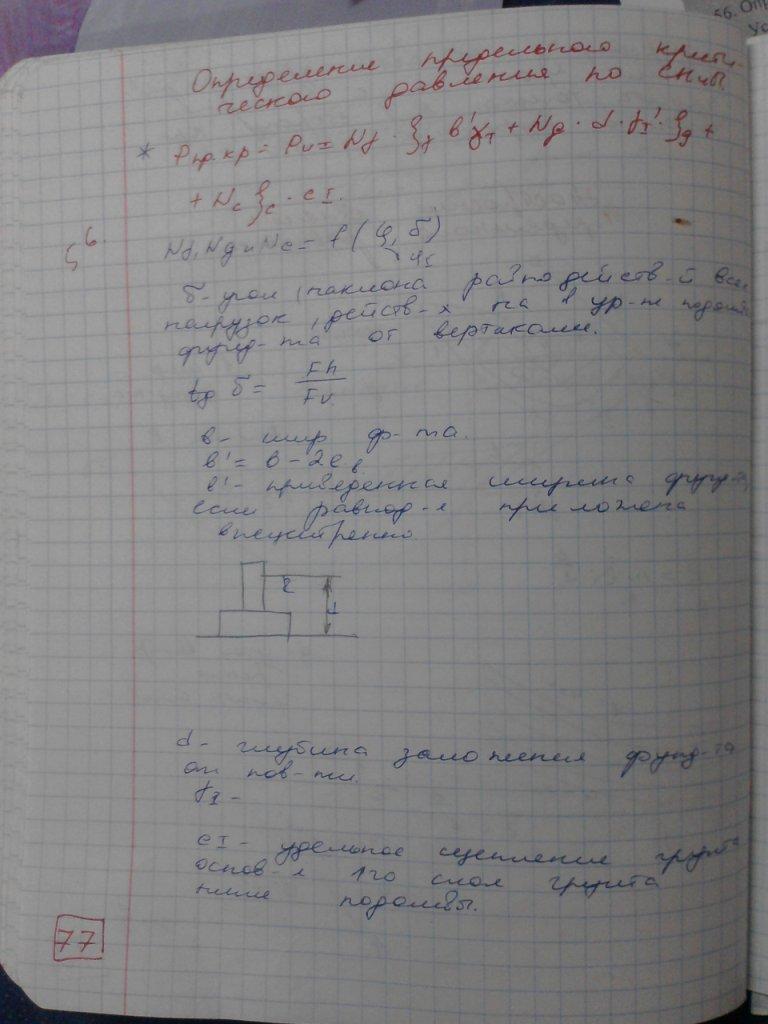 Определение предельного крити-
ческого давления по СНиП
* Pпр.кр = Pu = Nγ · ξγ b'γI + Nq · d · γI' · ξq +
+ Nc ξc · cI.
56.
Nγ, Nq и Nc = f (φ, δ)
φI
δ - угол наклона равнодейств-й всех
нагрузок, действ-х на в ур-не подошв
фунд-та от вертикали.
tg δ = Fh / Fv
в - шир ф-та.
в' = в - 2eв
в' - приведенная ширина фунд-та
если равнод-я приложена
внецентренно
d - глубина заложения фунд-та
от пов-ти.
γI -
cI - удельное сцепление грунта
основ-я 1го слоя грунта
ниже подошвы.
77
56. Оп
ус